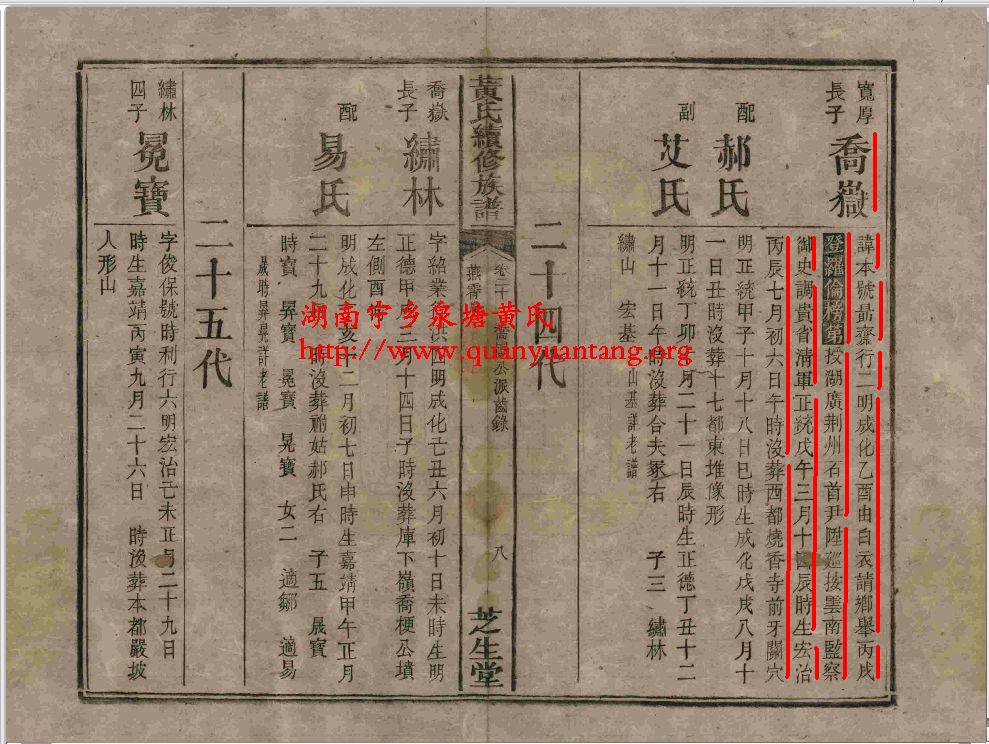 寬厚
長子
喬嶽
諱本號喦齋行二明成化乙酉由白衣請鄉舉丙戌
登羅倫榜第 授湖廣荊州石首尹陞巡按雲南監察
御史調貴省清軍正統戊午三月十四辰時生宏治
丙辰七月初六日午時沒葬酉都燒香寺前牙關穴
配
郝氏
明正統甲子十月十八日巳時生成化戊戌八月十
一日丑時沒葬十七都東堆像形
副
艾氏
明正統丁卯十月二十一日辰時生正德丁丑十二
月十一日午時沒葬合夫冢右 子三 繡林
繡山 宏基 山基詳老譜
二十四代
黃氏續修族譜
卷二十 喬 公派齒錄
燕霄
八
芝生堂
喬嶽
長子
繡林
字紹業 明成化己丑六月初十日未時生明
正德甲戌二月十四日子時沒葬庫下嶺喬梗公墳
左側酉
配
易氏
明成化 亥十二月初七日申時生嘉靖甲午正月
二十九 時沒葬祔姑郝氏右 子五 晟寶
時寶 昇寶 冕寶 晃寶 女二 適鄒 適易
晟時昇晃詳老譜
二十五代
繡林
四子
冕寶
字俊保號時利行六明宏治己未正月二十九日
時生嘉靖丙寅九月二十六日 時沒葬本都嚴坡
人形山
湖南宁乡泉塘黄氏
http://www.quanyuantang.org